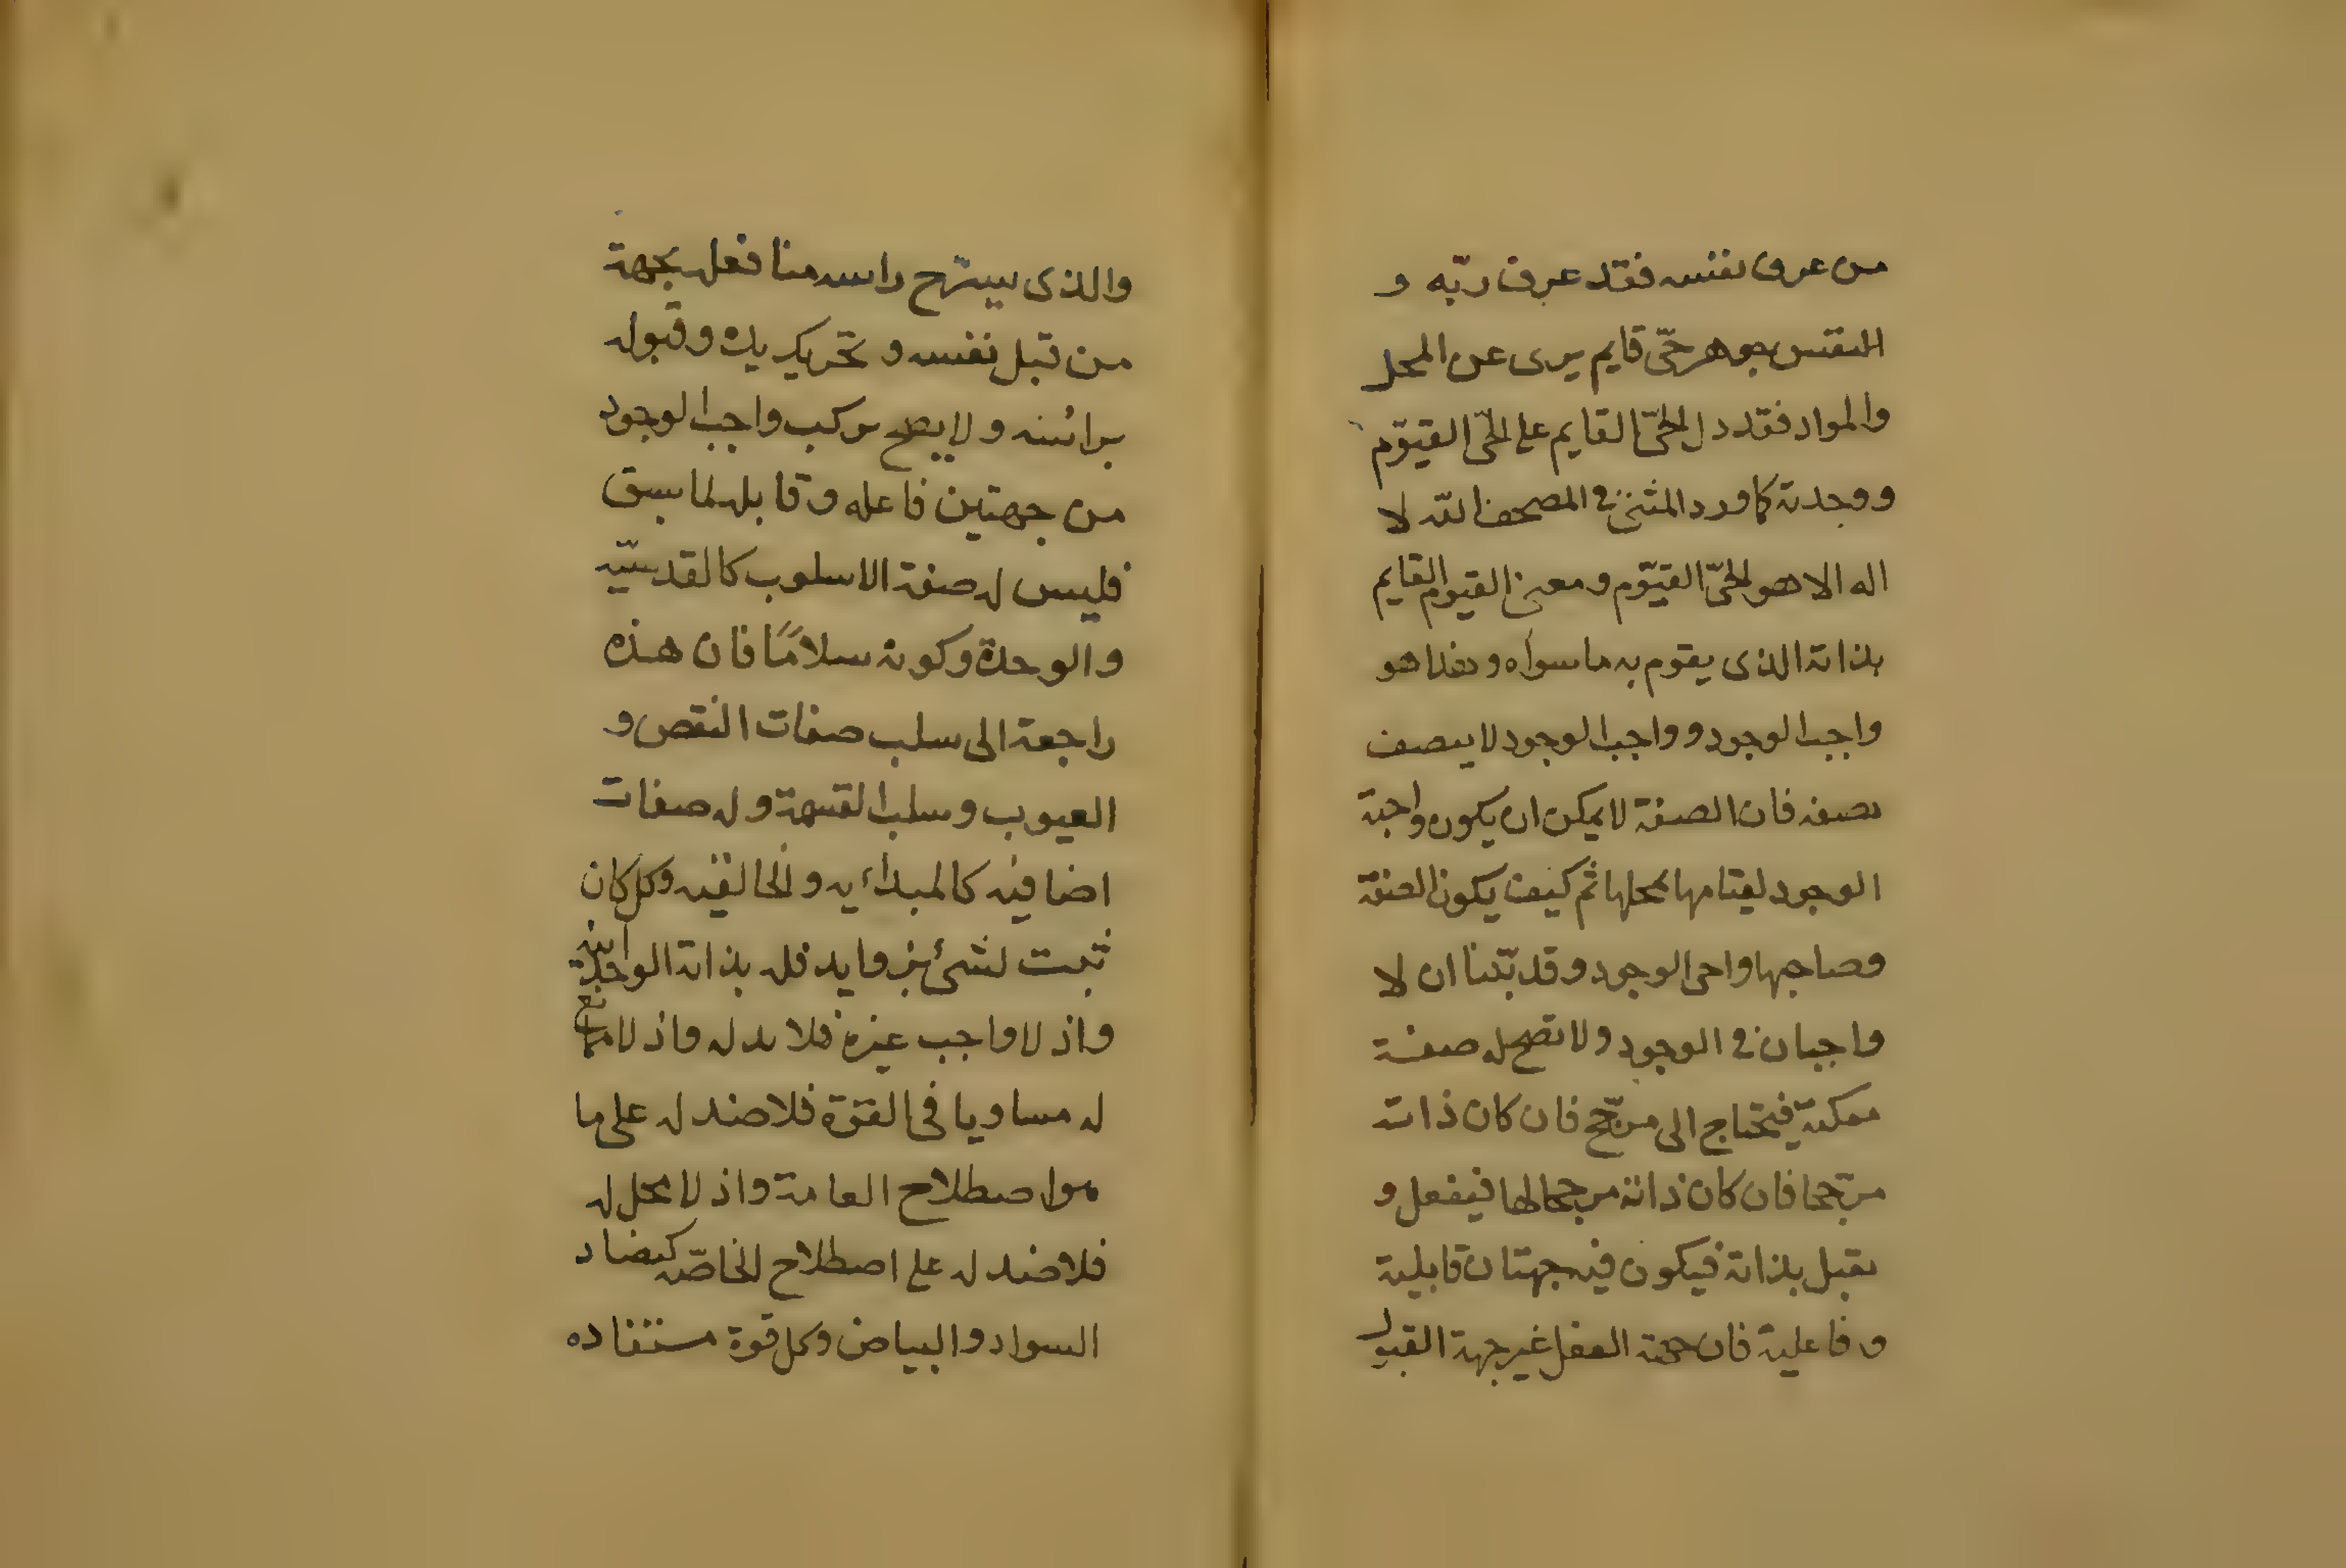 من عرف نفسه فقد عرف ربّه و
النفس جوهر حىّ قايم برى عن المحل
والمواد فقد دل الحىّ القايم على الحىّ القيّوم
و وحدته كما ورد المثنى فى المصحف الله لا
اله الا هو الحىّ القيّوم ومعنى القيوم القايم
بذاته الذى يقوم به ما سواه وهذا هو
واجب الوجود و واجب الوجود لا يتصف
بصفه فان الصفة لا يمكن ان يكون واجبة
الوجود لقيامها بمحلها ثم كيف يكون الصفة
وصاحبها واجبى الوجود وقد بيّنا ان لا
واجبان فى الوجود ولا تصح له صفة
ممكنة فيحتاج الى مرجّح فان كان ذاته
مرجّحا فان كان ذاته مرجحا لها فيفعل و
يقبل بذاته فيكون فيه جهتان قابلية
وفاعلية فان جهة الفعل غير جهة القبول
والذى يسرّح راسه منا فعله بجهة
من قبل نفسه و تحريك يده وقبوله
براسه ولا يصح تركب واجب الوجود
من جهتين فاعله وقابله لما سبق
فليس له صفة الا سلوب كالقدسيّه
والوحدة وكونه سلامًا فان هذه
راجعة الى سلب صفات النقص و
العيوب وسلب القسمة وله صفات
اضافيه كالمبدأيه والخالقيه وكل كان
ثبت لشئ بزوايد فله بذاته الواحدة
واذ لا واجب غيره فلا ند له واذ لا ممانع
له مساويا فى القوّة فلا ضد له على ما
هو اصطلاح العامة واذ لا محل له
فلا ضد له على اصطلاح الخاصّه كضاد
السواد والبياض وكل قوة مستفاده